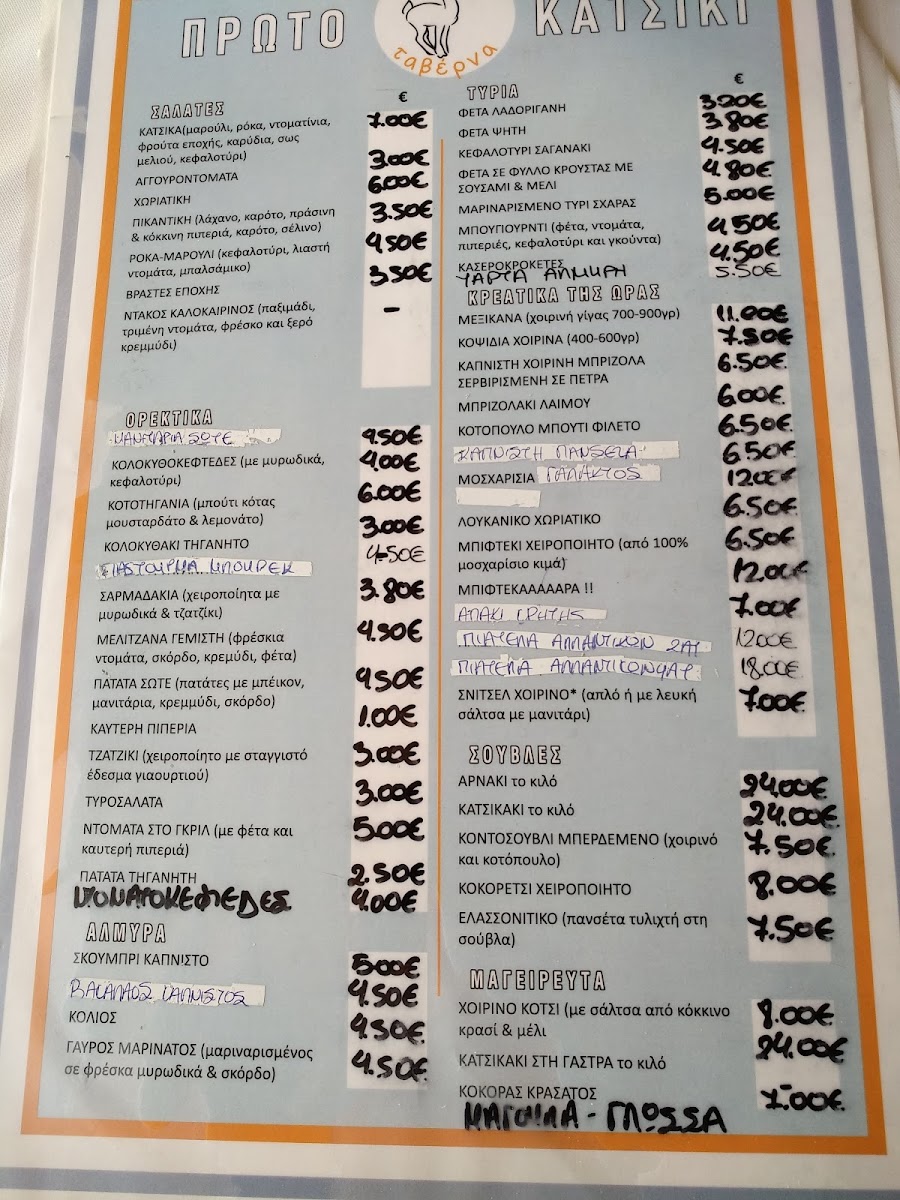 ΠΡΩΤΟ ΚΑΤΣΙΚΙ
ταβέρνα
ΣΑΛΑΤΕΣ €
ΚΑΤΣΙΚΑ(μαρούλι, ρόκα, ντοματίνια, 7.00€
φρούτα εποχής, καρύδια, σως
μελιού, κεφαλοτύρι)
ΑΓΓΟΥΡΟΝΤΟΜΑΤΑ 3.00€
ΧΩΡΙΑΤΙΚΗ 6.00€
ΠΙΚΑΝΤΙΚΗ (λάχανο, καρότο, πράσινη 3.50€
& κόκκινη πιπεριά, καρότο, σέλινο)
ΡΟΚΑ-ΜΑΡΟΥΛΙ (κεφαλοτύρι, λιαστή 4.50€
ντομάτα, μπαλσάμικο)
ΒΡΑΣΤΕΣ ΕΠΟΧΗΣ 3.50€
ΝΤΑΚΟΣ ΚΑΛΟΚΑΙΡΙΝΟΣ (παξιμάδι, -
τριμένη ντομάτα, φρέσκο και ξερό
κρεμμύδι)
ΟΡΕΚΤΙΚΑ
ΜΑΝΙΤΑΡΙΑ ΣΩΤΕ 4.50€
ΚΟΛΟΚΥΘΟΚΕΦΤΕΔΕΣ (με μυρωδικά, 4.00€
κεφαλοτύρι)
ΚΟΤΟΤΗΓΑΝΙΑ (μπούτι κότας 6.00€
μουσταρδάτο & λεμονάτο)
ΚΟΛΟΚΥΘΑΚΙ ΤΗΓΑΝΗΤΟ 3.00€
ΠΑΣΤΟΥΡΜΑ ΜΠΟΥΡΕΚ 4.50€
ΣΑΡΜΑΔΑΚΙΑ (χειροποίητα με 3.80€
μυρωδικά & τζατζίκι)
ΜΕΛΙΤΖΑΝΑ ΓΕΜΙΣΤΗ (φρέσκια 4.50€
ντομάτα, σκόρδο, κρεμύδι, φέτα)
ΠΑΤΑΤΑ ΣΩΤΕ (πατάτες με μπέικον, 4.50€
μανιτάρια, κρεμμύδι, σκόρδο)
ΚΑΥΤΕΡΗ ΠΙΠΕΡΙΑ 1.00€
ΤΖΑΤΖΙΚΙ (χειροποίητο με σταγγιστό 3.00€
έδεσμα γιαουρτιού)
ΤΥΡΟΣΑΛΑΤΑ 3.00€
ΝΤΟΜΑΤΑ ΣΤΟ ΓΚΡΙΛ (με φέτα και 5.00€
καυτερή πιπεριά)
ΠΑΤΑΤΑ ΤΗΓΑΝΗΤΗ 2.50€
ΝΤΟΜΑΤΟΚΕΦΤΕΔΕΣ 4.00€
ΑΛΜΥΡΑ
ΣΚΟΥΜΠΡΙ ΚΑΠΝΙΣΤΟ 5.00€
ΒΑCΑΛΑΟΣ ΚΑΠΝΙΣΤΟΣ 4.50€
ΚΟΛΙΟΣ 4.50€
ΓΑΥΡΟΣ ΜΑΡΙΝΑΤΟΣ (μαριναρισμένος 4.50€
σε φρέσκα μυρωδικά & σκόρδο)
ΤΥΡΙΑ €
ΦΕΤΑ ΛΑΔΟΡΙΓΑΝΗ 3.20€
ΦΕΤΑ ΨΗΤΗ 3.80€
ΚΕΦΑΛΟΤΥΡΙ ΣΑΓΑΝΑΚΙ 4.50€
ΦΕΤΑ ΣΕ ΦΥΛΛΟ ΚΡΟΥΣΤΑΣ ΜΕ 4.80€
ΣΟΥΣΑΜΙ & ΜΕΛΙ
ΜΑΡΙΝΑΡΙΣΜΕΝΟ ΤΥΡΙ ΣΧΑΡΑΣ 5.00€
ΜΠΟΥΓΙΟΥΡΝΤΙ (φέτα, ντομάτα, 4.50€
πιπεριές, κεφαλοτύρι και γκούντα)
ΚΑΣΕΡΟΚΡΟΚΕΤΕΣ 4.50€
ΤΑΡΤΑ ΑΛΜΥΡΗ 5.50€
ΚΡΕΑΤΙΚΑ ΤΗΣ ΩΡΑΣ
ΜΕΞΙΚΑΝΑ (χοιρινή γίγας 700-900γρ) 11.00€
ΚΟΨΙΔΙΑ ΧΟΙΡΙΝΑ (400-600γρ) 7.50€
ΚΑΠΝΙΣΤΗ ΧΟΙΡΙΝΗ ΜΠΡΙΖΟΛΑ 6.50€
ΣΕΡΒΙΡΙΣΜΕΝΗ ΣΕ ΠΕΤΡΑ
ΜΠΡΙΖΟΛΑΚΙ ΛΑΙΜΟΥ 6.00€
ΚΟΤΟΠΟΥΛΟ ΜΠΟΥΤΙ ΦΙΛΕΤΟ 6.50€
ΚΑΠΝΙΣΤΗ ΠΑΝSΕΤΑ 6.50€
ΜΟΣΧΑΡΙΣΙΑ ΓΑΛΑΚΤΟΣ 12.00€
ΛΟΥΚΑΝΙΚΟ ΧΩΡΙΑΤΙΚΟ 6.50€
ΜΠΙΦΤΕΚΙ ΧΕΙΡΟΠΟΙΗΤΟ (από 100% 6.50€
μοσχαρίσιο κιμά)
ΜΠΙΦΤΕΚΑΑΑΑΑΡΑ !! 12.00€
ΑΠΑΚΙ ΚΡΗΤΗΣ 7.00€
ΠΙΑΤΕΛΑ ΑΛΛΑΝΤΙΚΩΝ 2ΑΤ 12.00€
ΠΙΑΤΕΛΑ ΑΛΛΑΝΤΙΚΩΝ 4ΑΤ 18.00€
ΣΝΙΤΣΕΛ ΧΟΙΡΙΝΟ* (απλό ή με λευκή 7.00€
σάλτσα με μανιτάρι)
ΣΟΥΒΛΕΣ
ΑΡΝΑΚΙ το κιλό 24.00€
ΚΑΤΣΙΚΑΚΙ το κιλό 24.00€
ΚΟΝΤΟΣΟΥΒΛΙ ΜΠΕΡΔΕΜΕΝΟ (χοιρινό 7.50€
και κοτόπουλο)
ΚΟΚΟΡΕΤΣΙ ΧΕΙΡΟΠΟΙΗΤΟ 8.00€
ΕΛΑΣΣΟΝΙΤΙΚΟ (πανσέτα τυλιχτή στη 7.50€
σούβλα)
ΜΑΓΕΙΡΕΥΤΑ
ΧΟΙΡΙΝΟ ΚΟΤΣΙ (με σάλτσα από κόκκινο 8.00€
κρασί & μέλι
ΚΑΤΣΙΚΑΚΙ ΣΤΗ ΓΑΣΤΡΑ το κιλό 24.00€
ΚΟΚΟΡΑΣ ΚΡΑΣΑΤΟΣ -
ΜΑΓΟΥΛΑ - ΓΛΩΣΣΑ 7.00€